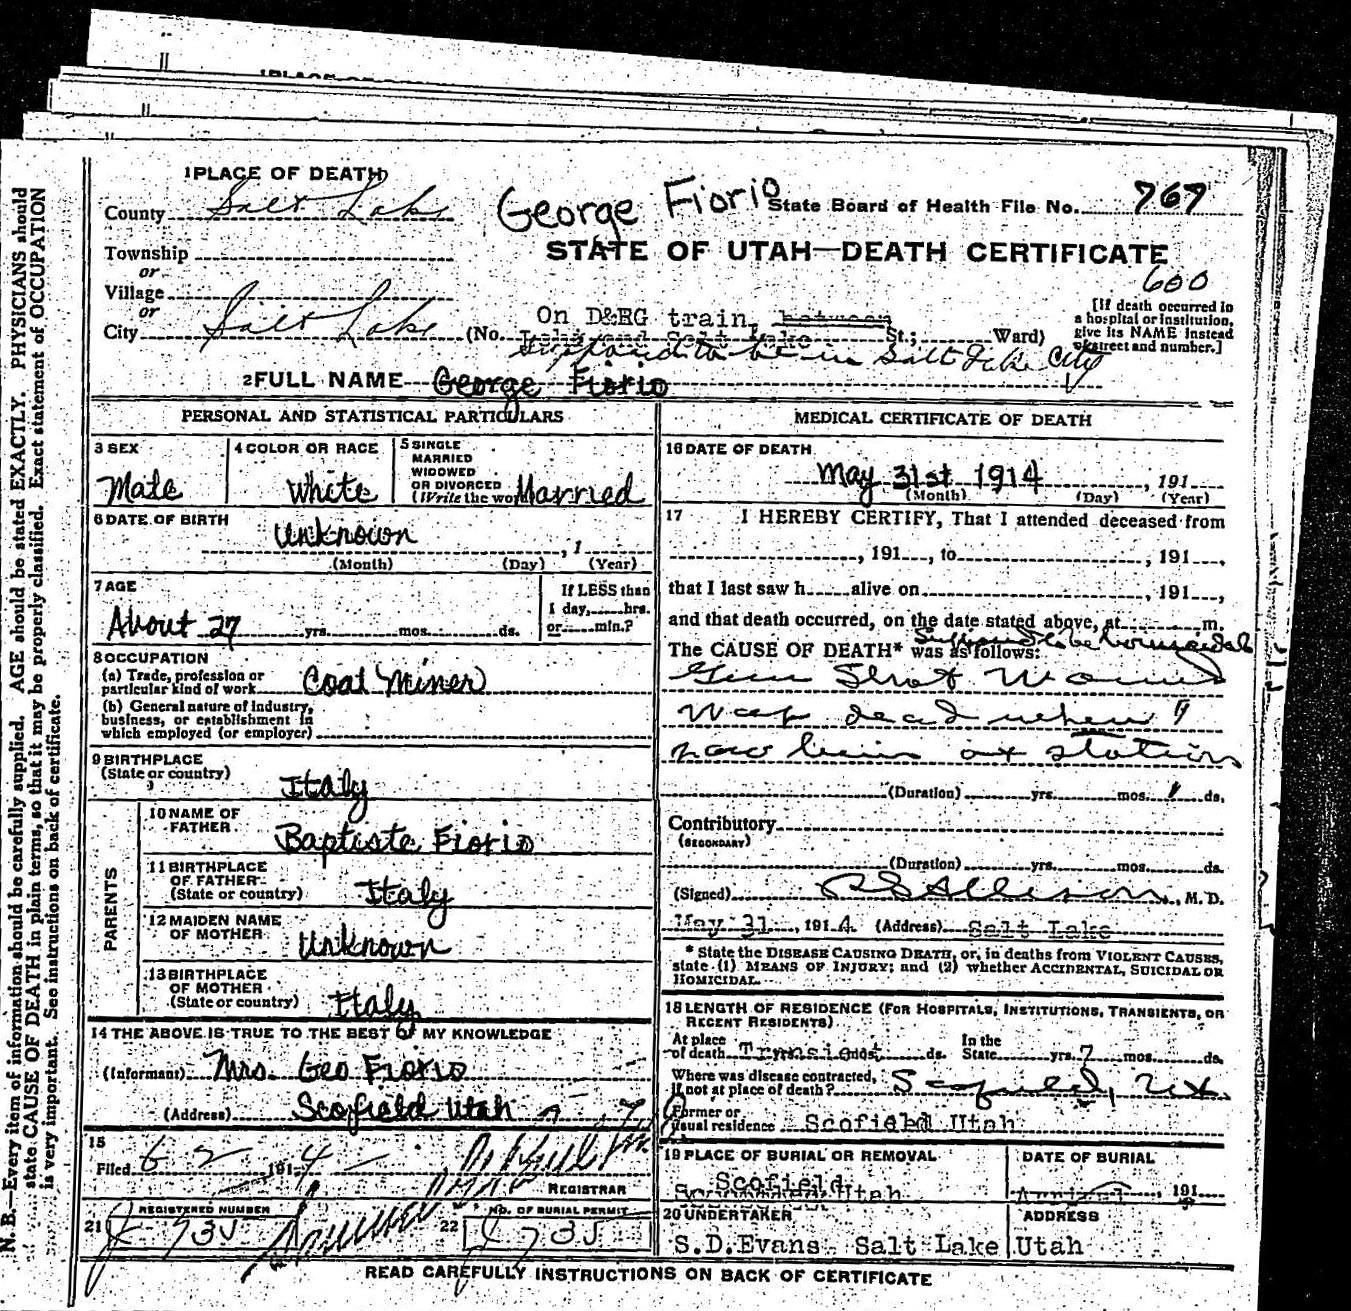 1 PLACE OF DEATH
County Salt Lake
George Fiorio
State Board of Health File No. 767
Township
STATE OF UTAH—DEATH CERTIFICATE
or
600
Village
or
City Salt Lake
(No. On D&RG train, between
Salt Lake St.; Ward)
supposed to be in Salt Lake City
[If death occurred in
a hospital or institution,
give its NAME instead
of street and number.]
2 FULL NAME George Fiorio
PERSONAL AND STATISTICAL PARTICULARS
3 SEX
Male
4 COLOR OR RACE
White
5 SINGLE
MARRIED
WIDOWED
OR DIVORCED
(Write the word) Married
6 DATE OF BIRTH
Unknown , 1
(Month) (Day) (Year)
7 AGE
About 27 yrs. mos. ds.
If LESS than
1 day, hrs.
or min.?
8 OCCUPATION
(a) Trade, profession or
particular kind of work Coal Miner
(b) General nature of industry,
business, or establishment in
which employed (or employer)
9 BIRTHPLACE
(State or country)
Italy
PARENTS
10 NAME OF
FATHER
Baptiste Fiorio
11 BIRTHPLACE
OF FATHER
(State or country) Italy
12 MAIDEN NAME
OF MOTHER
Unknown
13 BIRTHPLACE
OF MOTHER
(State or country) Italy
14 THE ABOVE IS TRUE TO THE BEST OF MY KNOWLEDGE
(Informant) Mrs. Geo Fiorio
(Address) Scofield Utah
15
Filed 6 2 191 4
REGISTRAR
REGISTERED NUMBER
21 735
NO. OF BURIAL PERMIT
22 735
MEDICAL CERTIFICATE OF DEATH
16 DATE OF DEATH
May 31st 1914 , 191
(Month) (Day) (Year)
17 I HEREBY CERTIFY, That I attended deceased from
, 191 , to , 191 ,
that I last saw h alive on , 191 ,
and that death occurred, on the date stated above, at m.
Supposed to be homicidal
The CAUSE OF DEATH* was as follows:
Gun Shot Wound
Was dead when
train at station
(Duration) yrs. mos. ds.
Contributory
(SECONDARY)
(Duration) yrs. mos. ds.
(Signed) Allison, M. D.
May 31, 191 4. (Address) Salt Lake
* State the DISEASE CAUSING DEATH, or, in deaths from VIOLENT CAUSES,
state (1) MEANS OF INJURY; and (2) whether ACCIDENTAL, SUICIDAL OR
HOMICIDAL.
18 LENGTH OF RESIDENCE (FOR HOSPITALS, INSTITUTIONS, TRANSIENTS, OR
RECENT RESIDENTS)
At place
of death Transient mos. ds.
In the
State yrs. 7 mos. ds.
Where was disease contracted,
if not at place of death? Scofield, Ut.
Former or
usual residence Scofield Utah
19 PLACE OF BURIAL OR REMOVAL
Scofield
Utah
DATE OF BURIAL
191
20 UNDERTAKER
S.D.Evans Salt Lake
ADDRESS
Utah
READ CAREFULLY INSTRUCTIONS ON BACK OF CERTIFICATE
N. B.—Every item of information should be carefully supplied. AGE should be stated EXACTLY. PHYSICIANS should
state CAUSE OF DEATH in plain terms, so that it may be properly classified. Exact statement of OCCUPATION
is very important. See instructions on back of certificate.